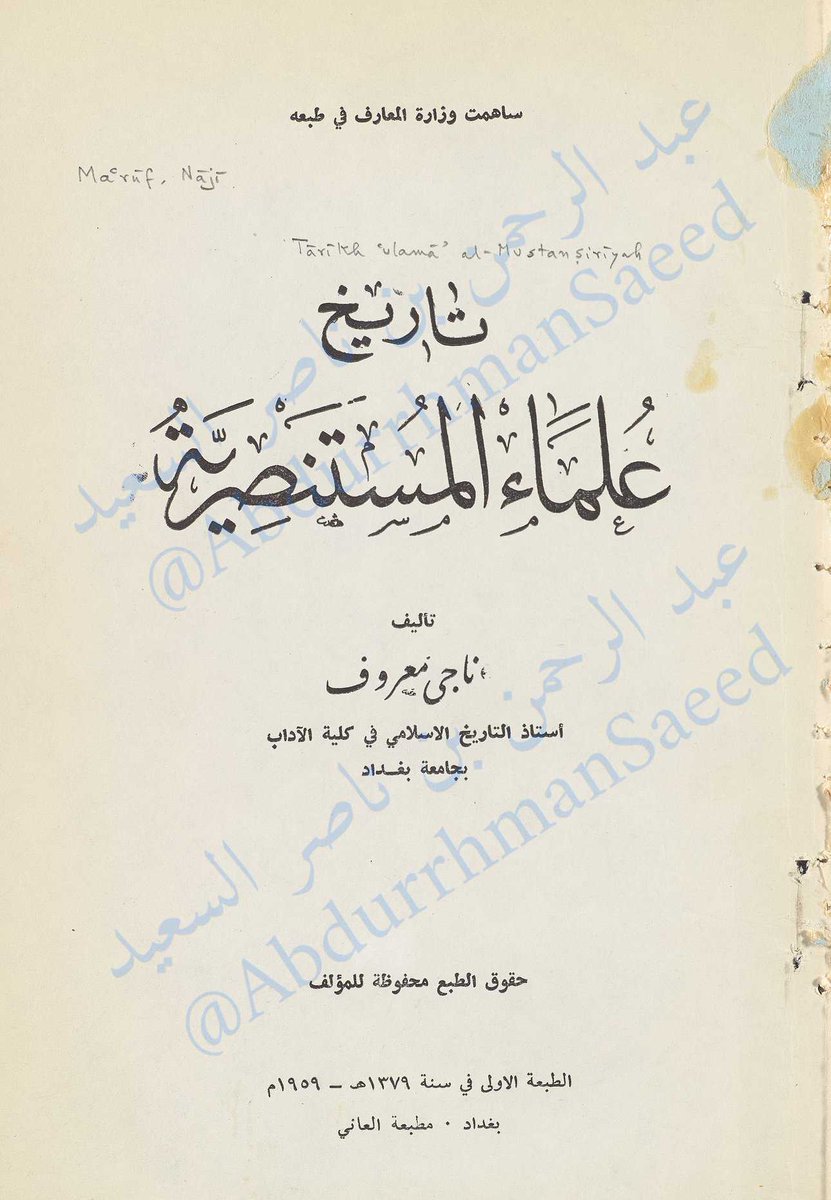 ساهمت وزارة المعارف في طبعه
Maʿrūf, Nājī
Tārīkh ʿulamāʾ al-Mustanṣirīyah
تاريخ
عُلمَاء المُستَنصِريَّة
تأليف
ناجي معروف
أستاذ التاريخ الاسلامي في كلية الآداب
بجامعة بغــداد
حقوق الطبع محفوظة للمؤلف
الطبعة الاولى في سنة ١٣٧٩هـ – ١٩٥٩م
بغداد ٠ مطبعة العاني
عبد الرحمن بن ناصر السعيد
@AbdurrhmanSaeed
عبد الرحمن بن ناصر السعيد
@AbdurrhmanSaeed